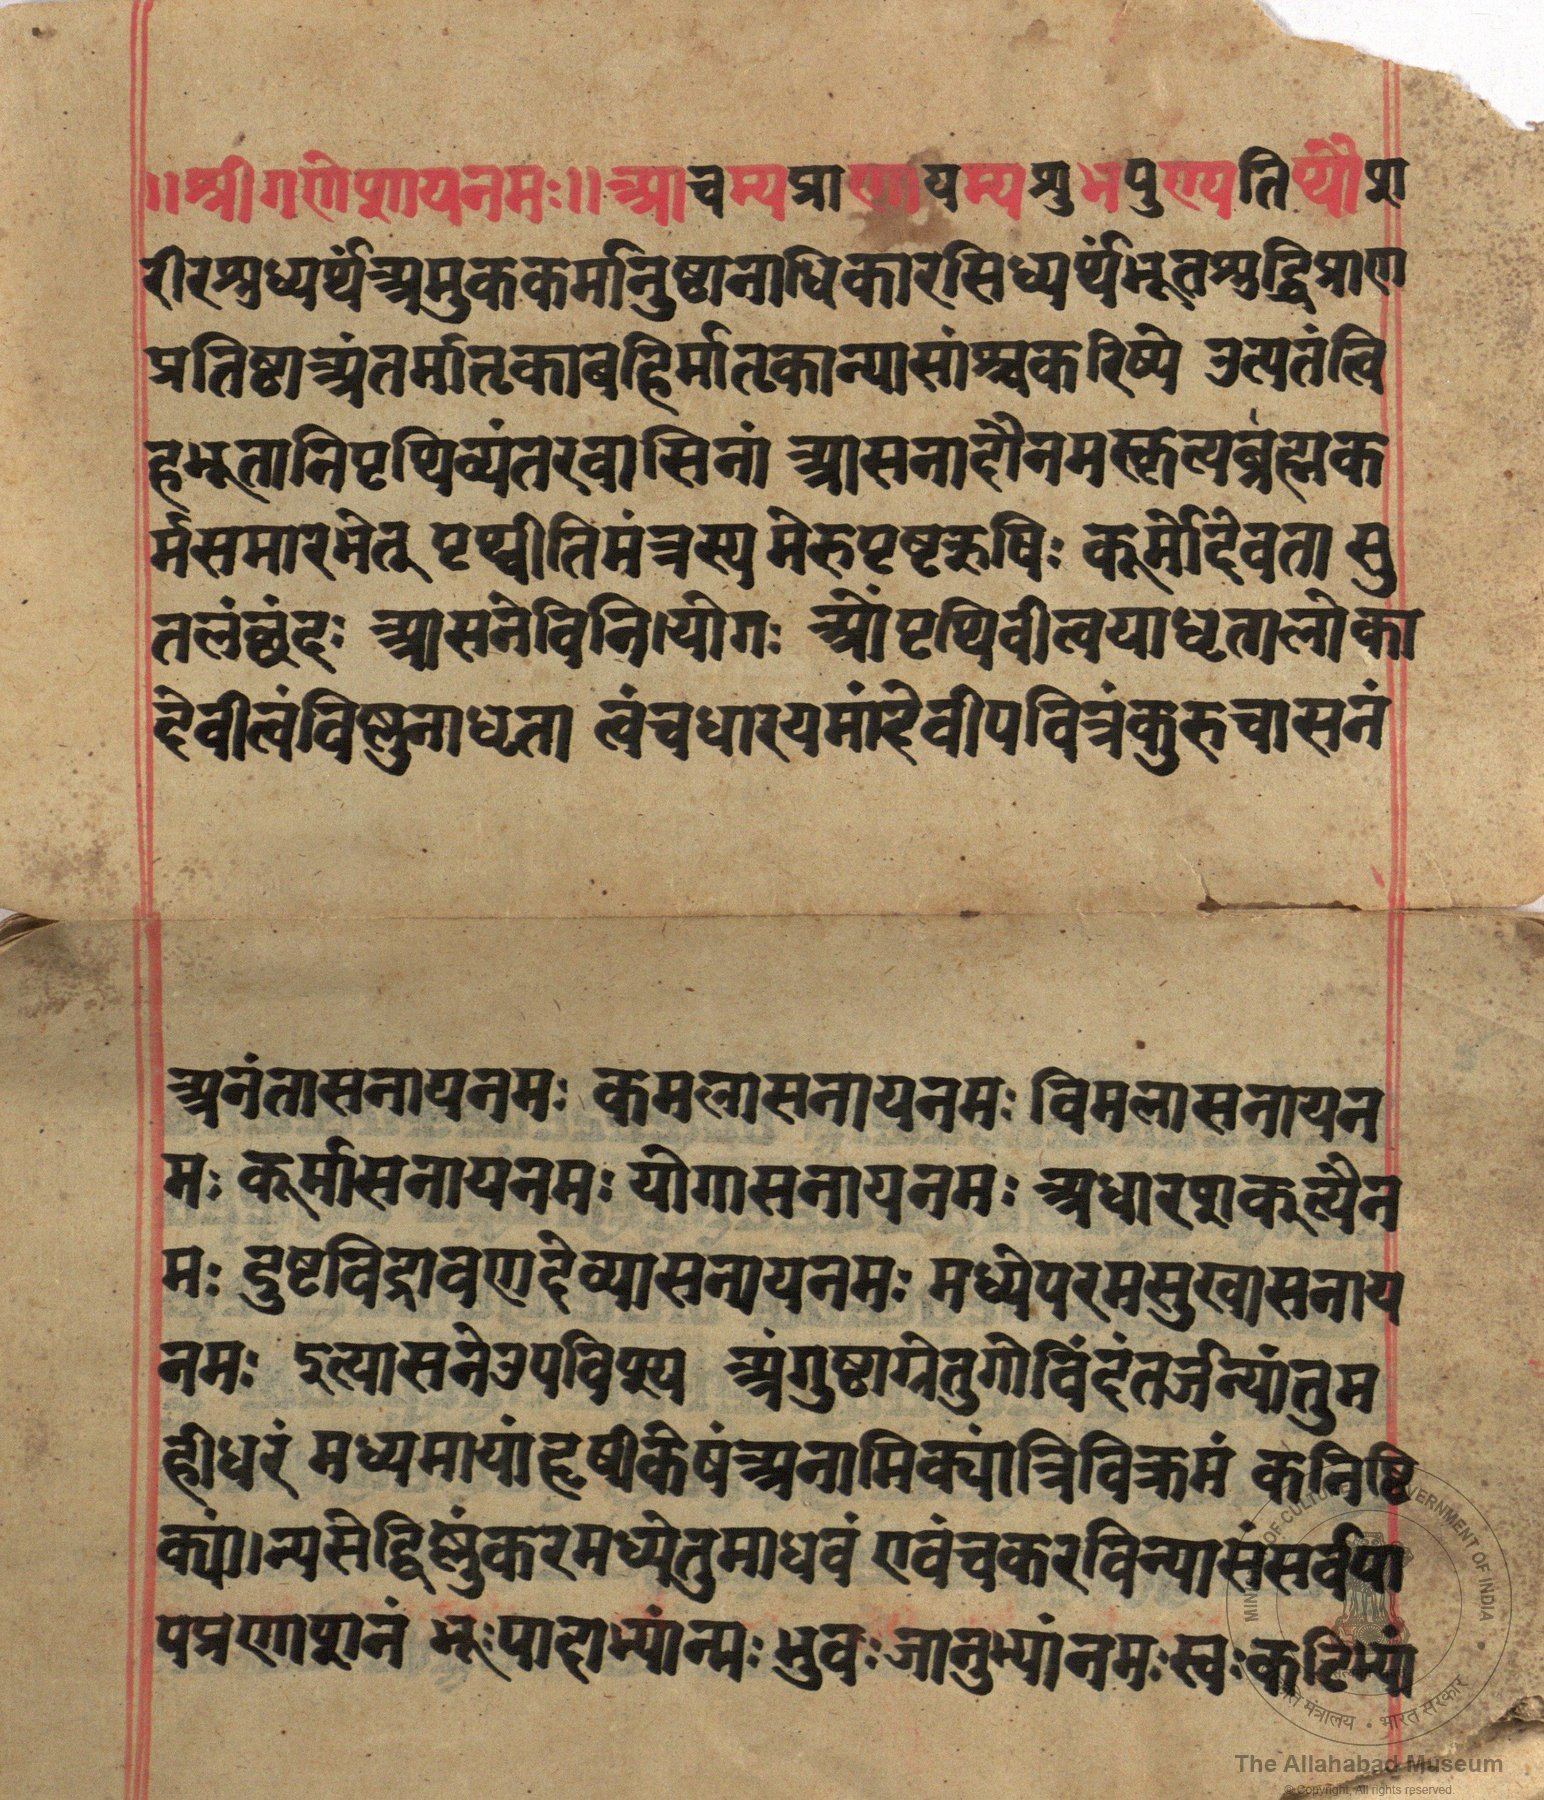 ॥श्रीगणेशायनमः॥आचम्यप्राणायम्यशुभपुण्यतिथ्यौश
रीरशुध्यर्थंअमुककर्मानुष्ठानाधिकारसिध्यर्थंभूतशुद्धिप्राण
प्रतिष्ठाअंतर्मातृकाबहिर्मातृकान्यासांश्चकरिष्ये उत्पतंत्वि
हभूतानिपृथिव्यंतरवासिनां आसनादौनमस्कृत्यब्रह्मक
र्मसमारभेत् पृथ्वीतिमंत्रस्य मेरुपृष्टऋषिः कूर्मोदेवता सु
तलंछंदः आसनेविनि।योगः ओंपृथिवीत्वयाधृतालोका
देवीत्वंविष्णुनाधृता त्वंचधारयमांदेवीपवित्रंकुरुचासनं
अनंतासनायनमः कमलासनायनमः विमलासनायन
मः कूर्मासनायनमः योगासनायनमः अधारशक्त्यैन
मः दुष्टविद्रावणदेव्यासनायनमः मध्येपरमसुखासनाय
नमः इत्यासनेउपविश्य अंगुष्ठाग्नेतुगोविंदंतर्जन्यांतुम
हीधरं मध्यमायांहृषीकेषंअनामिक्यांत्रिविक्रमं कनिष्टि
क्यां।न्यसेद्विष्णुंकरमध्येतुमाधवं एवंचकरविन्यासंसर्वपा
पप्रणाशनं भूःपादाभ्यांन्मः भुवःजानुभ्यांनमःस्वःकटिभ्यां
MINISTRY OF CULTURE GOVERNMENT OF INDIA
संस्कृति मंत्रालय • भारत सरकार
The Allahabad Museum
© Copyright, All rights reserved.